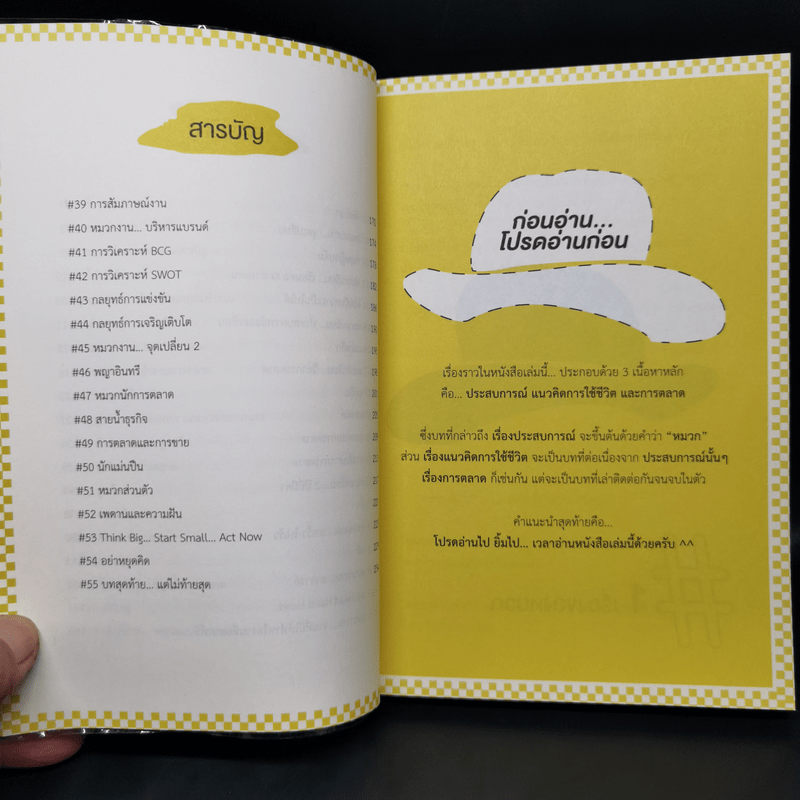 สารบัญ
#39 การสัมภาษณ์งาน
#40 หมวกงาน... บริหารแบรนด์
#41 การวิเคราะห์ BCG
#42 การวิเคราะห์ SWOT
#43 กลยุทธ์การแข่งขัน
#44 กลยุทธ์การเจริญเติบโต
#45 หมวกงาน... จุดเปลี่ยน 2
#46 พญาอินทรี
#47 หมวกนักการตลาด
#48 สายน้ำธุรกิจ
#49 การตลาดและการขาย
#50 นักแม่นปืน
#51 หมวกส่วนตัว
#52 เพดานและความฝัน
#53 Think Big... Start Small... Act Now
#54 อย่าหยุดคิด
#55 บทสุดท้าย... แต่ไม่ท้ายสุด
ก่อนอ่าน...
โปรดอ่านก่อน
เรื่องราวในหนังสือเล่มนี้... ประกอบด้วย 3 เนื้อหาหลัก
คือ... ประสบการณ์ แนวคิดการใช้ชีวิต และการตลาด
ซึ่งบทที่กล่าวถึง เรื่องประสบการณ์ จะขึ้นต้นด้วยคำว่า "หมวก"
ส่วน เรื่องแนวคิดการใช้ชีวิต จะเป็นบทที่ต่อเนื่องจาก ประสบการณ์นั้นๆ
เรื่องการตลาด ก็เช่นกัน แต่จะเป็นบทที่เล่าติดต่อกันจนจบในตัว
คำแนะนำสุดท้ายคือ...
โปรดอ่านไป ยิ้มไป... เวลาอ่านหนังสือเล่มนี้ด้วยครับ ^^